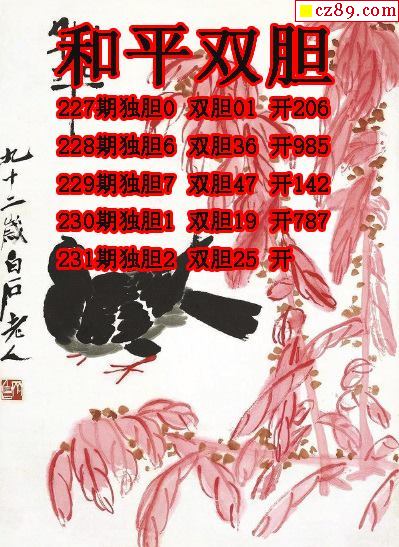 cz89.com
和平双胆
227期独胆0 双胆01 开206
228期独胆6 双胆36 开985
229期独胆7 双胆47 开142
230期独胆1 双胆19 开787
231期独胆2 双胆25 开
九十二歲白石老人